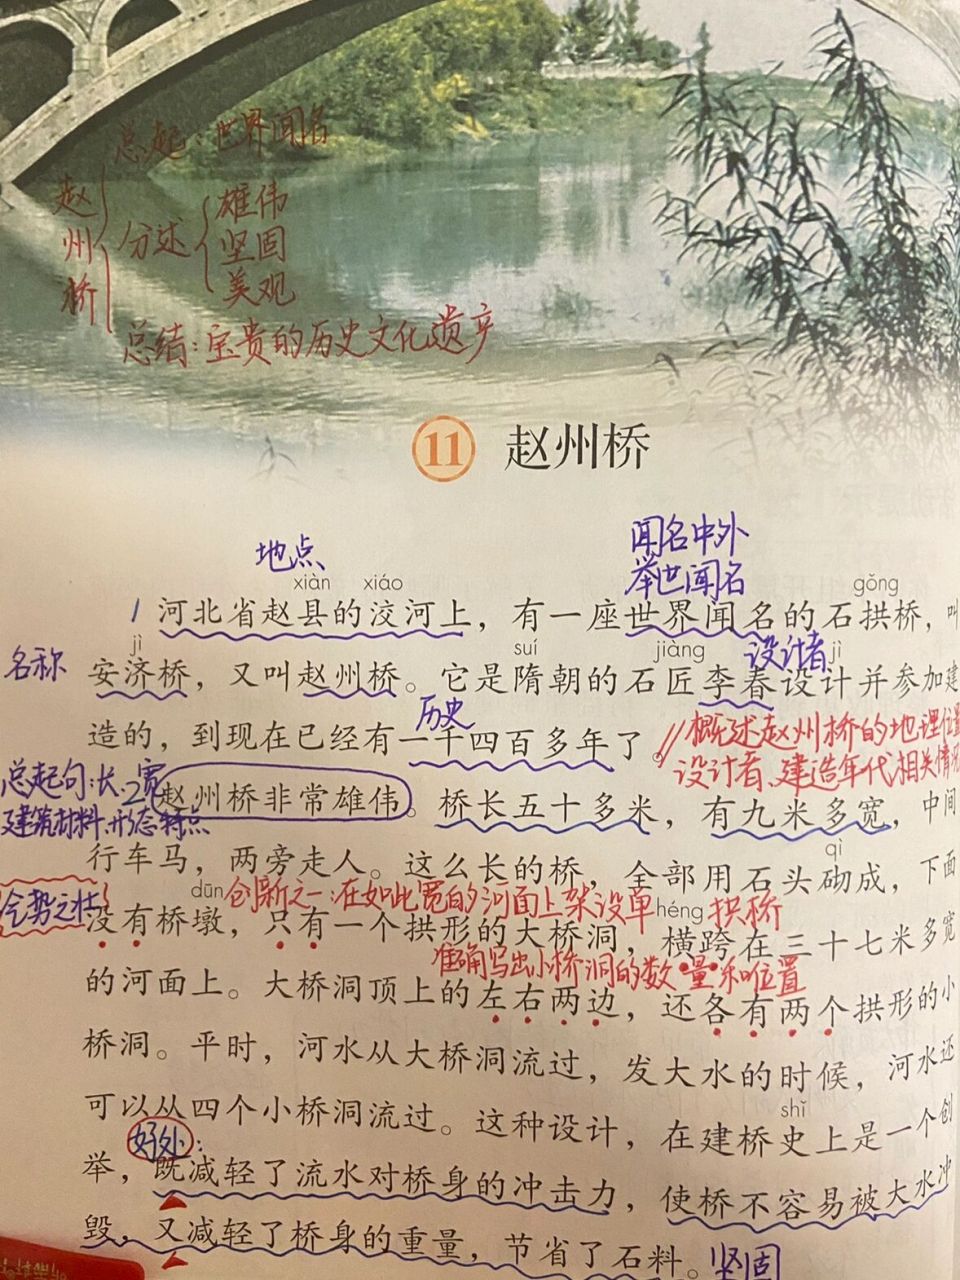 总起：世界闻名
赵州桥
分述
雄伟
坚固
美观
总结：宝贵的历史文化遗产
11 赵州桥
地点
闻名中外
举世闻名
xiàn xiáo gǒng
1 河北省赵县的洨河上，有一座世界闻名的石拱桥，叫
名称
jì suí jiàng 设计者 jì
安济桥，又叫赵州桥。它是隋朝的石匠李春设计并参加建
历史
造的，到现在已经有一千四百多年了。
//概述赵州桥的地理位置
设计者、建造年代相关情况
总起句：长、宽
建筑材料、形态特点
2 赵州桥非常雄伟。桥长五十多米，有九米多宽，中间
qì
行车马，两旁走人。这么长的桥，全部用石头砌成，下面
气势之壮
dūn 创新之一：在如此宽的河面上架设单 héng 拱桥
没有桥墩，只有一个拱形的大桥洞，横跨在三十七米多宽
准确写出小桥洞的数量和位置
的河面上。大桥洞顶上的左右两边，还各有两个拱形的小
桥洞。平时，河水从大桥洞流过，发大水的时候，河水还
shǐ
可以从四个小桥洞流过。这种设计，在建桥史上是一个创
好处：
举，既减轻了流水对桥身的冲击力，使桥不容易被大水冲
毁，又减轻了桥身的重量，节省了石料。
坚固